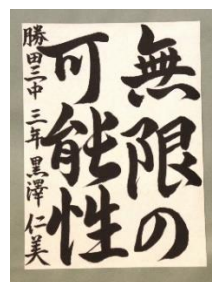 無限の
可能性
勝田三中 三年 黒澤 仁美